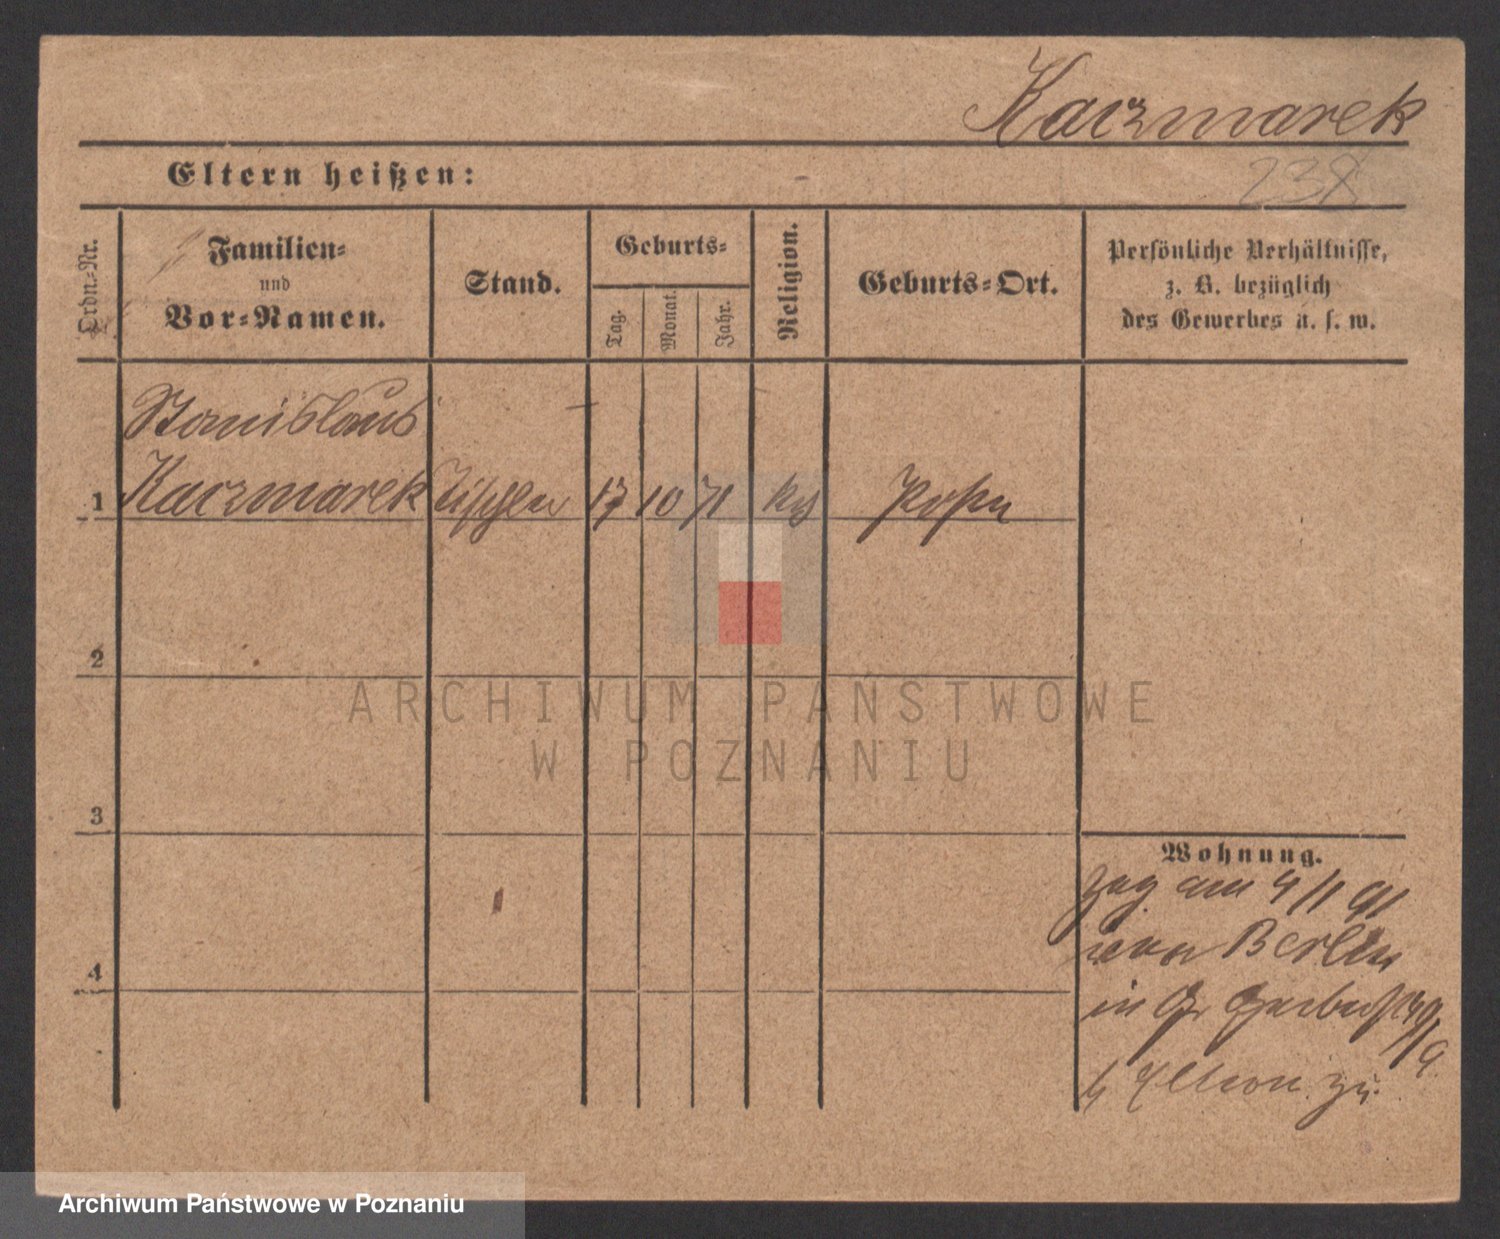 Kaczmarek
Eltern heißen:
238
Ordn.-Nr.
Familien-
und
Vor-Namen.
Stand.
Geburts-
Tag.
Monat.
Jahr.
Religion.
Geburts-Ort.
Persönliche Verhältnisse,
z. B. bezüglich
des Gewerbes u. s. w.
Stanislaus
1 Kaczmarek Tischler 17 10 71 kth Posen
2
3
4
Wohnung.
Zog am 4/1 91
von Berlin
in Gr Gerberst 49/9
b Eltern zu
ARCHIWUM PAŃSTWOWE
W POZNANIU
Archiwum Państwowe w Poznaniu